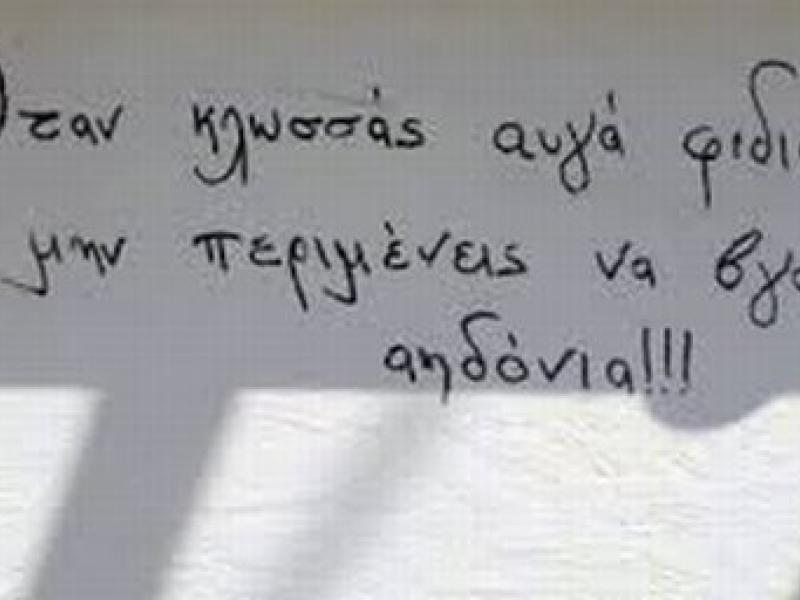 Όταν κλωσσάς αυγά
μην περιμένεις να
αηδόνια!!!